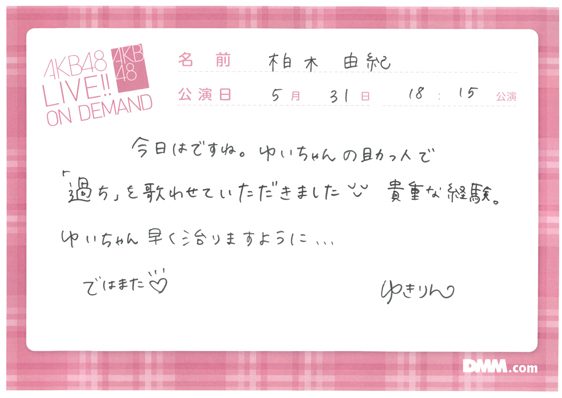 AKB48
LIVE!!
ON DEMAND
AKB
48
名前 柏木 由紀
公演日 5月 31日 18:15 公演
今日はですね。ゆいちゃんの助っ人で
「過ち」を歌わせていただきました 貴重な経験。
ゆいちゃん早く治りますように...
ではまた♡
ゆきりん
DMM.com